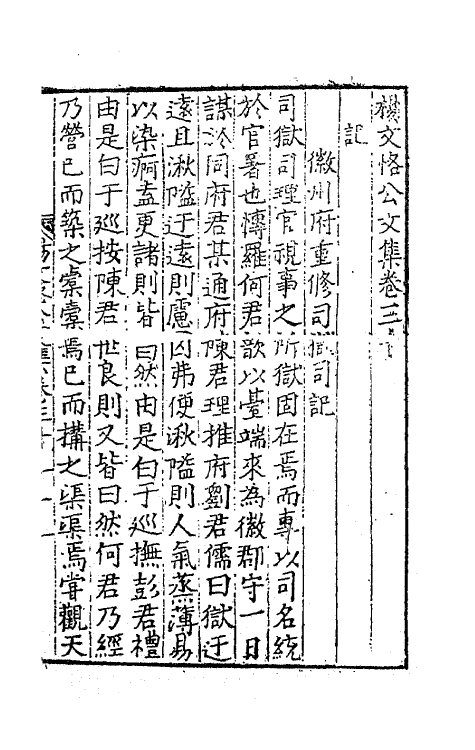 楊文恪公文集卷三十
記
徽州府重修司獄司記
司獄司理官視事之所獄固在焉而專以司名統
於官署也博羅何君歆以臺端來為徽郡守一日
謀於同府君某通府陳君理推府劉君儒曰獄迂
遠且湫隘迂遠則慮囚弗便湫隘則人氣蒸薄易
以染痾盍更諸則皆曰然由是白于巡撫彭君禮
由是白于巡按陳君世良則又皆曰然何君乃經
乃營已而築之橐橐焉已而搆之渠渠焉嘗觀天